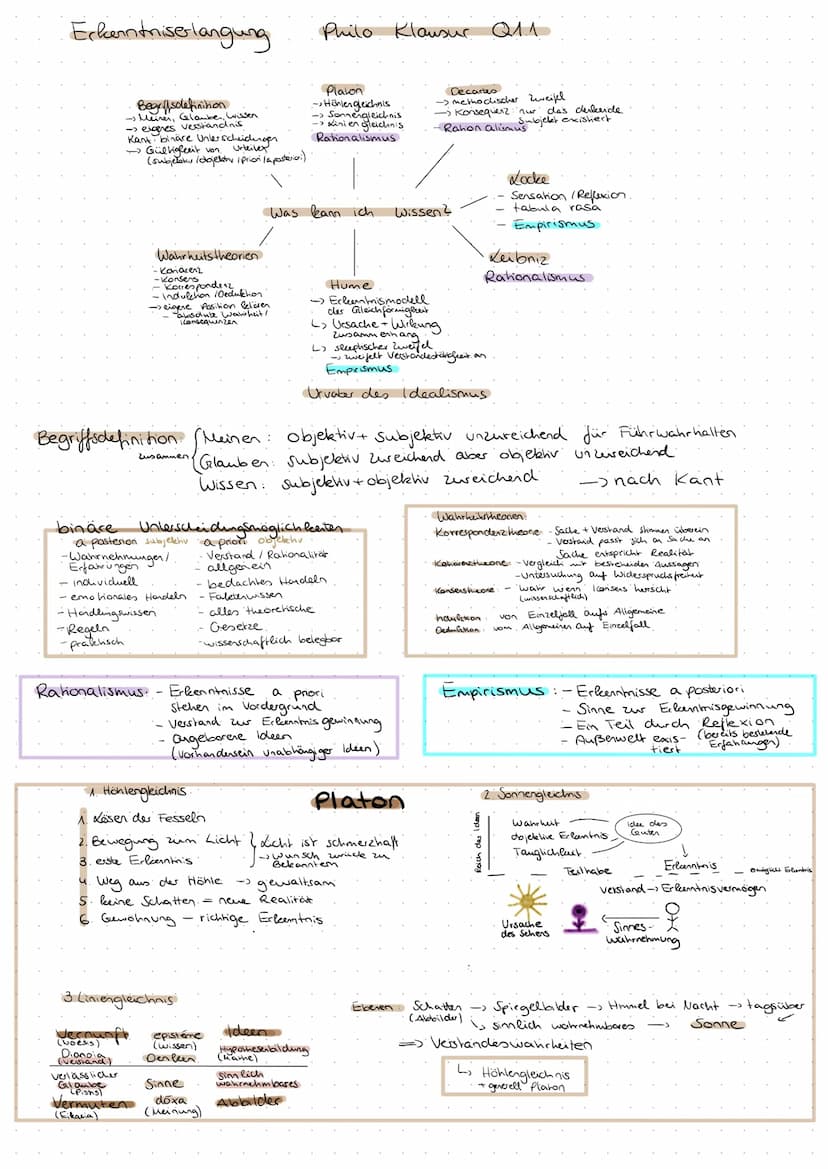 Erkenntniserlangung Philo Klausur Q11
Begriffsdefinition
→ Meinen, Glaube, Wissen
→ eigenes Verständnis
Kant: binäre Unterscheidungen
→ Gültigkeit von Urteilen
(subjektiv/objektiv/priori/aposteriori)
Platon
→ Höhlengleichnis
→ Sonnengleichnis
→ Liniengleichnis
Rationalismus
Decartes
→ methodischer Zweifel
→ Konsequenz: nur das denkende
Subjekt existiert
Rationalismus
Locke
- Sensation/Reflexion
- tabula rasa
- Empirismus
Was kann ich Wissen?
Leibniz
Rationalismus
Wahrheitstheorien
- Kohärenz
- Konsens
- Korrespondenz
- Induktion/Deduktion
→ eigene Position klären
- absolute Wahrheit/
Konsequenzen
Hume
→ Erkenntnismodell
der Gleichförmigkeit
↳ Ursache + Wirkung
Zusammenhang
↳ skeptischer Zweifel
→ zweifelt Verstandestätigkeit an
Empirismus
Urvater des Idealismus
Begriffsdefinition
zusammen
Meinen: objektiv + subjektiv unzureichend für Führwahrhalten
Glauben: subjektiv zureichend aber objektiv unzureichend
Wissen: subjektiv + objektiv zureichend → nach Kant
binäre Unterscheidungsmöglichkeiten
a posteriori subjektiv
- Wahrnehmungen/
Erfahrungen
- individuell
- emotionales Handeln
- Handlungswissen
- Regeln
- praktisch
a priori objektiv
- Verstand/Rationalität
- allgemein
- bedachtes Handeln
- Faktenwissen
- alles theoretische
- Gesetze
- wissenschaftlich belegbar
Wahrheitstheorien:
Korrespondenztheorie - Sache + Verstand stimmen überein
- Verstand passt sich an Sache an
Sache entspricht Realität
Kohärenztheorie - Vergleich mit bestehenden Aussagen
- Untersuchung auf Widerspruchsfreiheit
Konsenstheorie - wahr wenn Konsens herscht
(wissenschaftlich)
Induktion: von Einzelfall aufs Allgemeine
Deduktion: vom Allgemeinen auf Einzelfall
Rationalismus: - Erkenntnisse a priori
stehen im Vordergrund
- Verstand zur Erkenntnisgewinnung
- angeborene Ideen
(Vorhandensein unabhängiger Ideen)
Empirismus: - Erkenntnisse a posteriori
- Sinne zur Erkenntnisgewinnung
- Ein Teil durch Reflexion
(bereits bestehende
Erfahrungen)
- Außenwelt exis-
tiert
Platon
1. Höhlengleichnis
1. Lösen der Fesseln
2. Bewegung zum Licht
3. erste Erkenntnis
Licht ist schmerzhaft
→ Wunsch zurück zu
Bekanntem
4. Weg aus der Höhle → gewaltsam
5. keine Schatten = neue Realität
6. Gewöhnung – richtige Erkenntnis
2. Sonnengleichnis
Reich der Ideen
Wahrheit
objektive Erkenntnis
Tauglichkeit
Idee des
Guten
Teilhabe
Erkenntnis
Verstand → Erkenntnisvermögen
Ursache
des Sehens
Sinnes-
wahrnehmung
3. Liniengleichnis
Vernunft
(Noesis)
epistéme
(Wissen)
Ideen
Dianoia
(Verstand)
Denken
Hypothesenbildung
verlässlicher
Glaube
(Pistis)
Sinne
sinnlich
wahrnehmbares
Vermuten
(Eikasia)
dóxa
(Meinung)
Abbilder
Ebenen: Schatten → Spiegelbilder → Himmel bei Nacht → tagsüber
(Abbilder)
↳ sinnlich wahrnehmbares → Sonne
⇒ Verstandeswahrheiten
↳ Höhlengleichnis
+ generell Platon